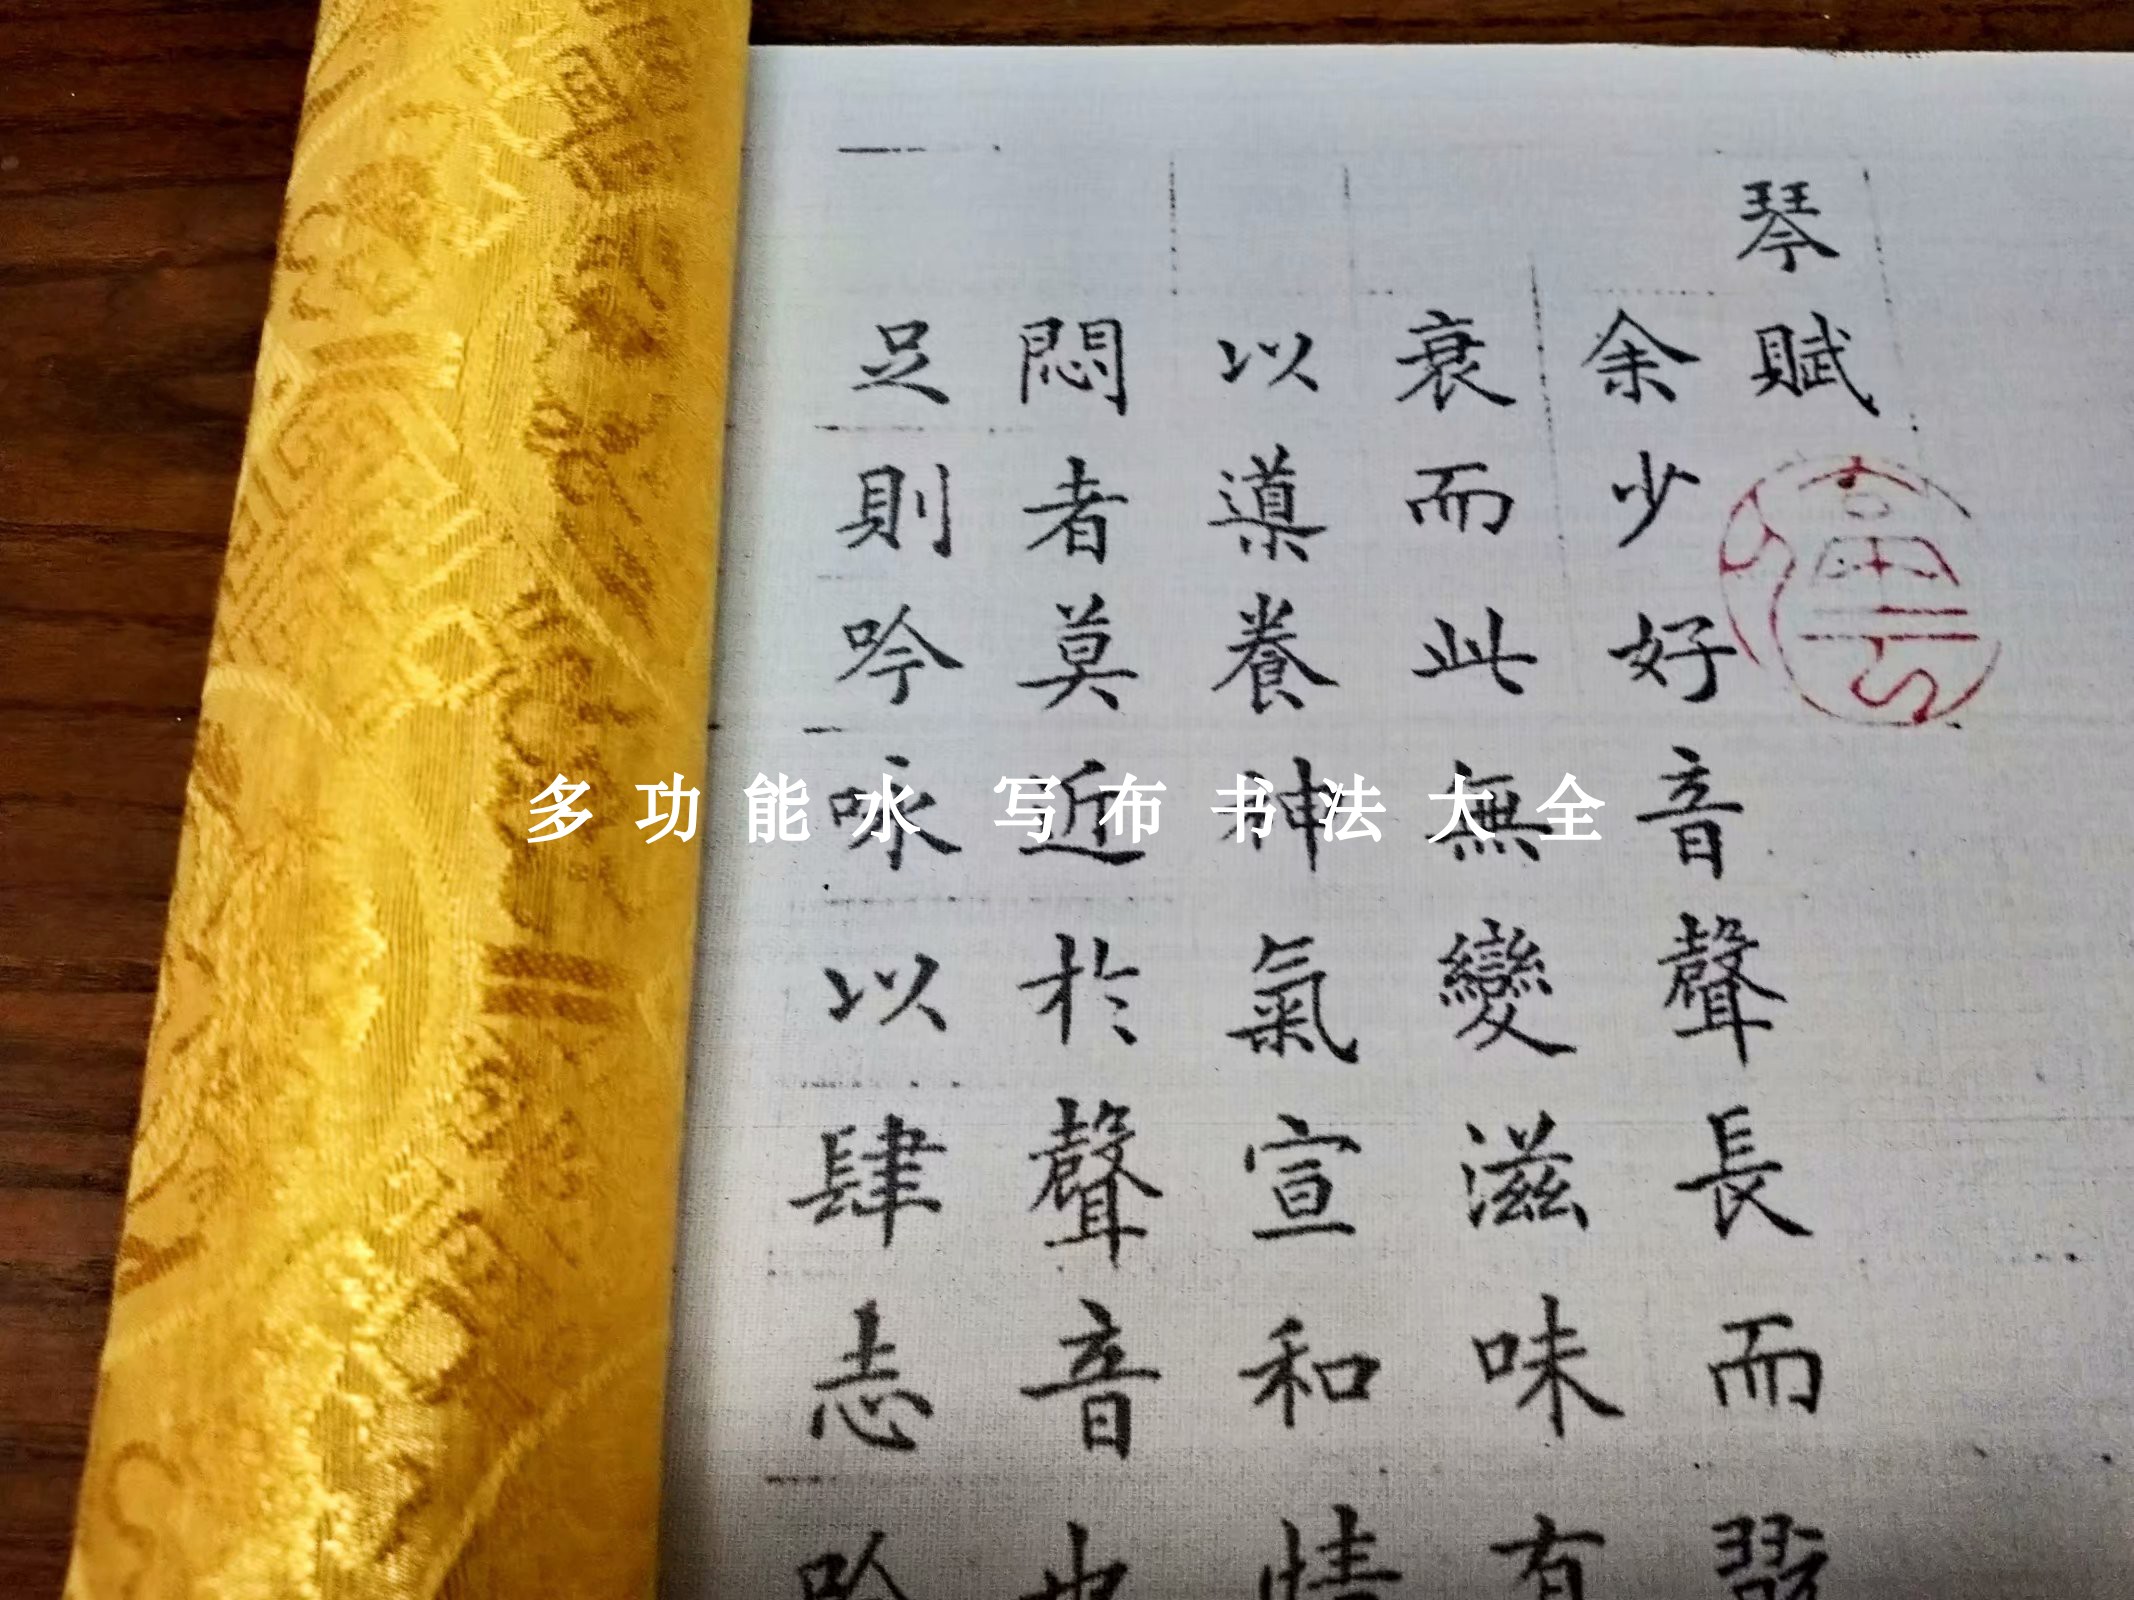 琴賦
余少好音聲長而翫
衰而此無變滋味有
以導養神氣宣和情
悶者莫近於聲音也
足則吟咏以肆志吟
多功能水 写布书法大全